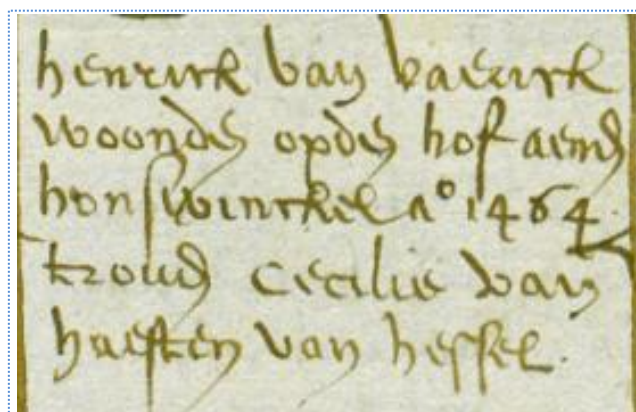 henrick van vaerick
woonde opde hof aend
honswinckel aº 1464
troud cecilie van
haeften van hessel.